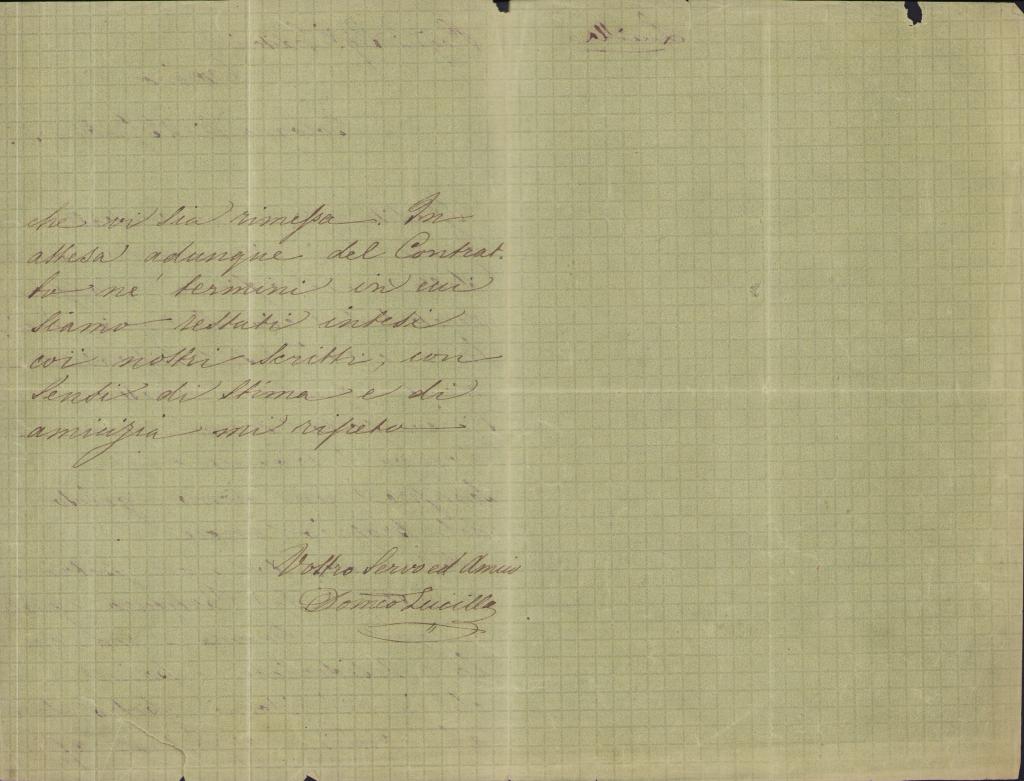 che vi sia rimessa. In
attesa adunque del Contrat.
to né termini in cui
siamo restati intesi
coi nostri scritti, con
sensi di stima e di
amicizia mi ripeto
Vostro Servo ed Amico
Lucilla